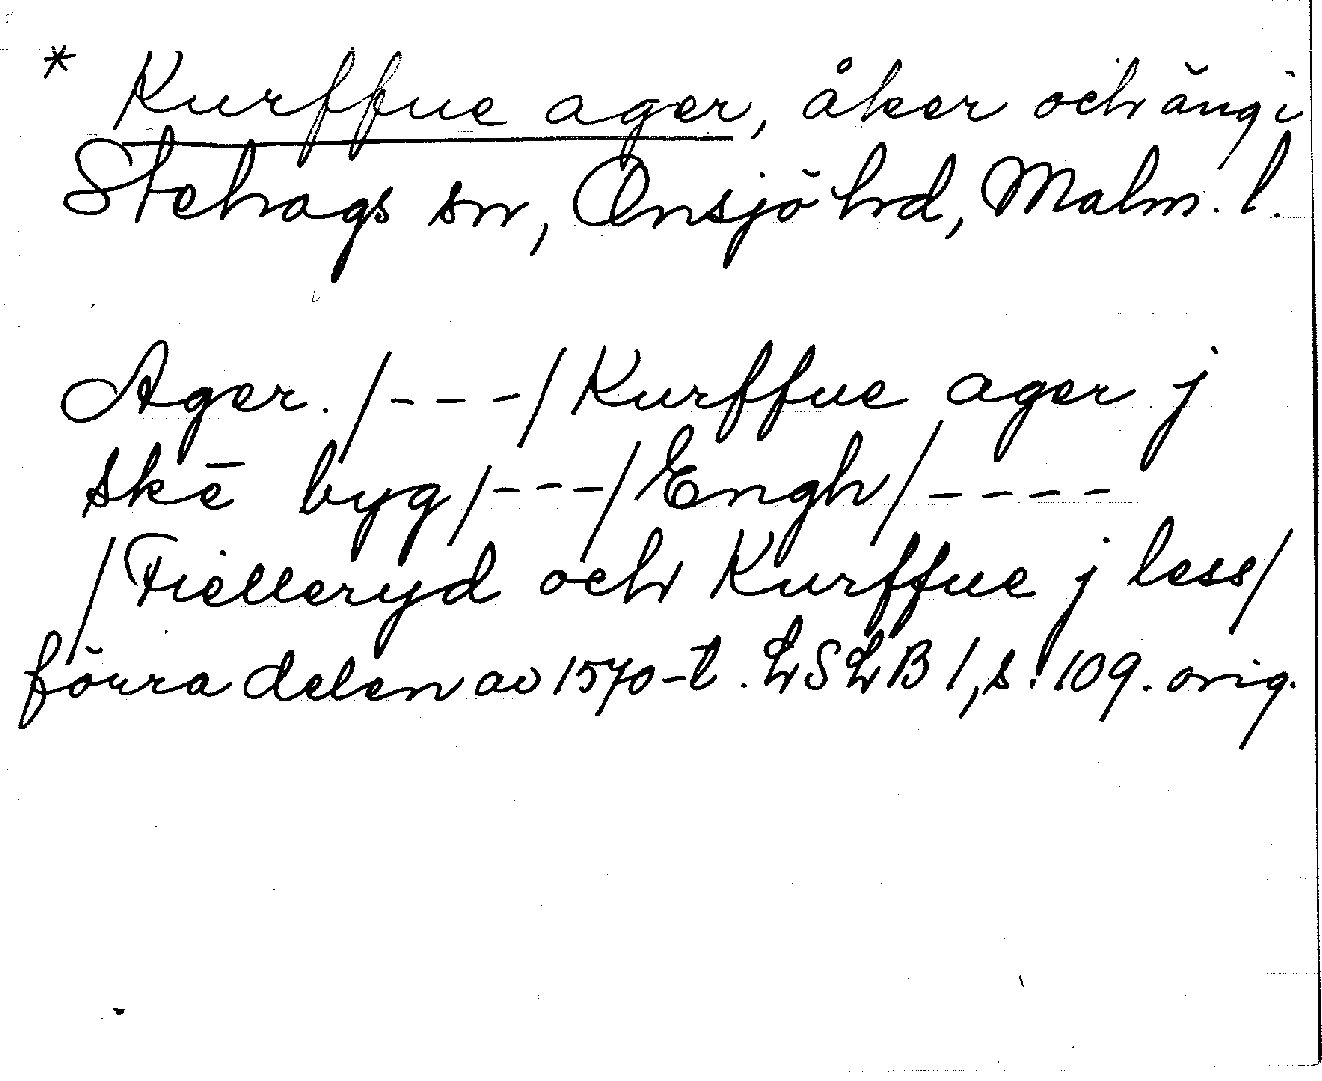 * Kurffue ager, åker och äng i
Stehags sn, Onsjö hrd, Malm. l.
Ager. /---/ Kurffue ager j
skē byg /---/ Engh /----
/ Fielleryd och Kurffue j less/
förra delen av 1570-t. LSLB 1, s. 109. orig.